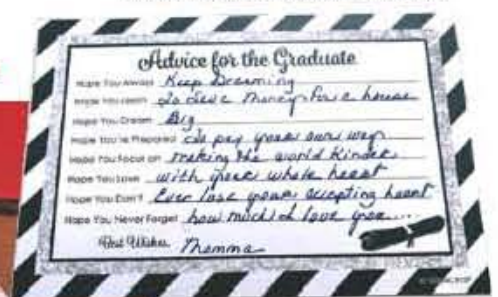 Advice for the Graduate
Hope You Always Keep Dreaming
Hope You Learn To Save money for a house
Hope You Dream Big
Hope You're Prepared to pay your own way
Hope You Focus on making the world kinder
Hope You Love with your whole heart
Hope You Don't Ever lose your accepting heart
Hope You Never Forget how much I love you...
Best Wishes, Momma